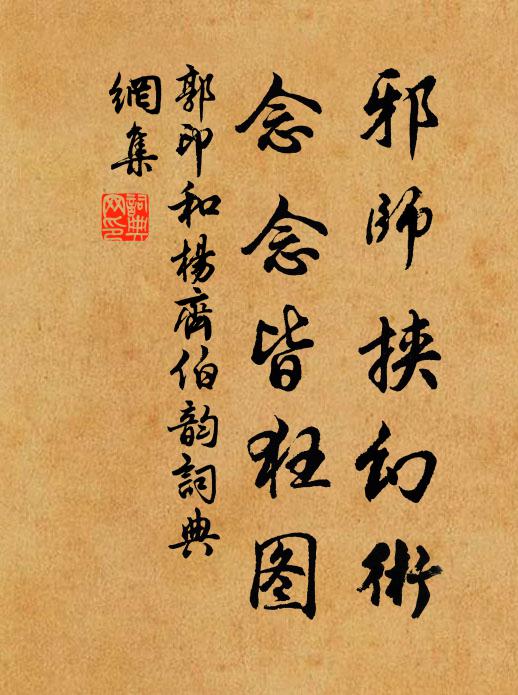 邪師挾幻術
念念皆狂图
郭印和楊齊伯韵詞典
網集
詞典
网印